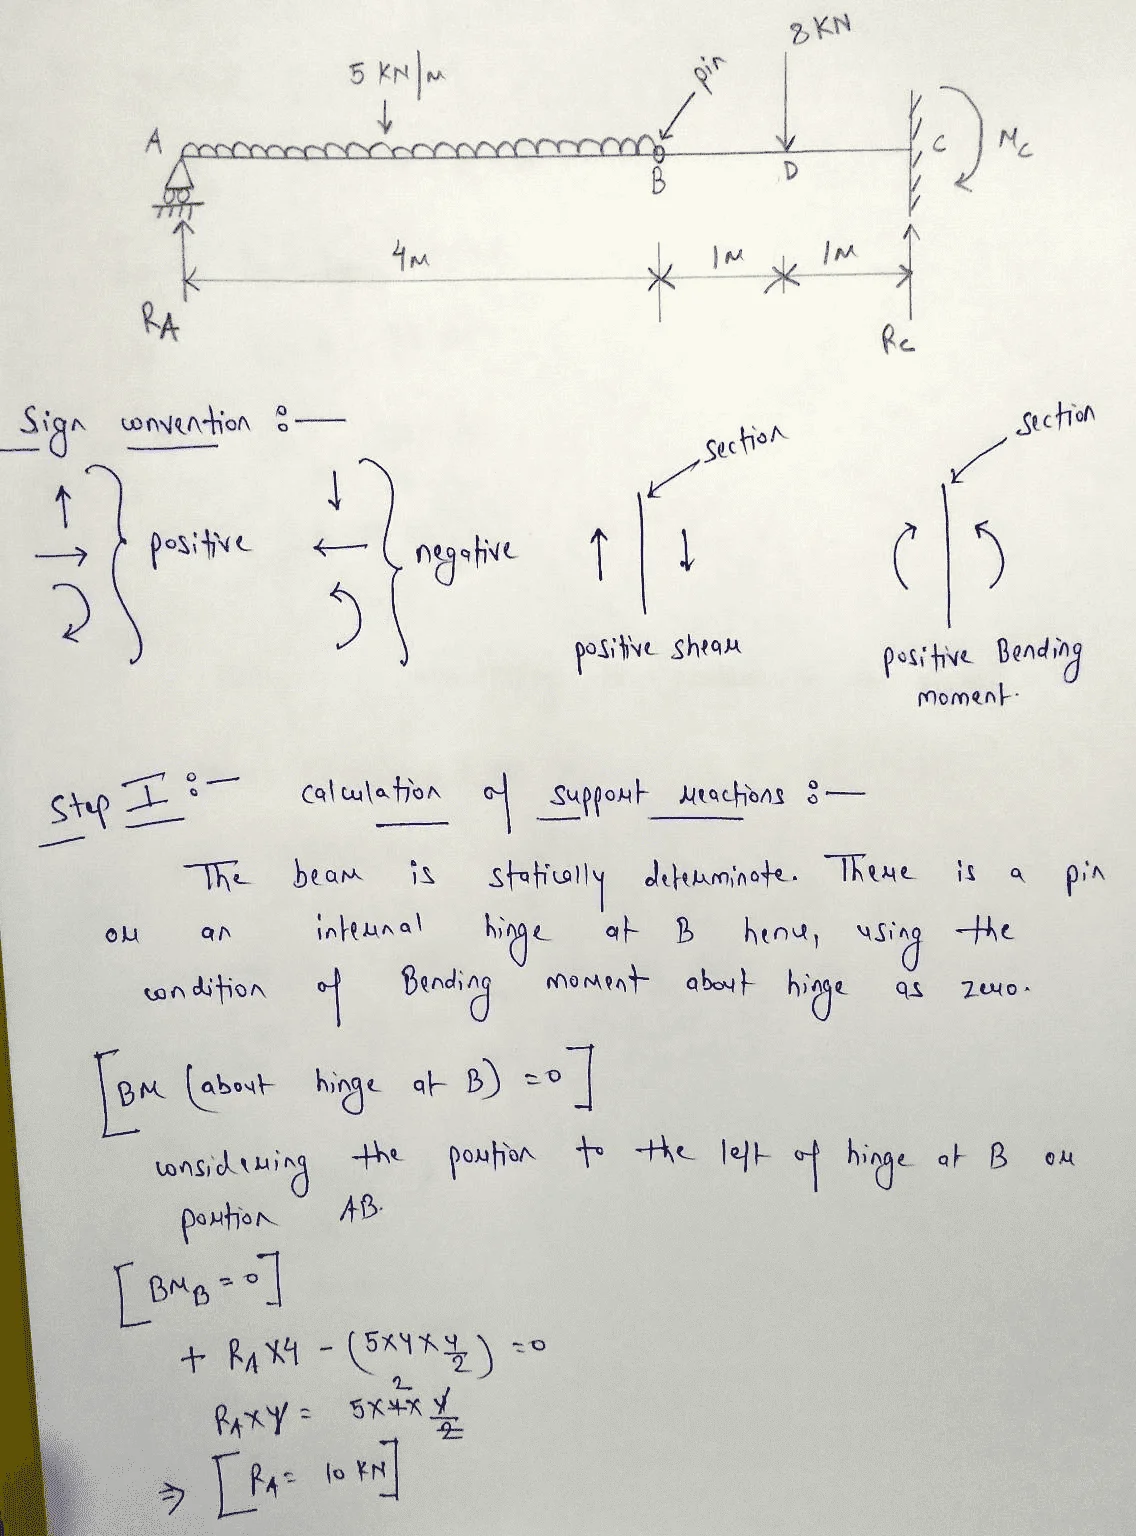 8 KN
5 KN/M
pin
A
B
D
C
Mc
4M
1M
1M
RA
Rc
Sign convention :—
↑ → positive
↓ ← negative
section
section
positive shear
positive Bending
moment.
Step I :— calculation of support reactions :—
The beam is statically determinate. There is a pin
or an internal hinge at B hence, using the
condition of Bending moment about hinge as zero.
[BM (about hinge at B) =0]
considering the portion to the left of hinge at B or
portion AB.
[BMB =0]
+ RA X4 - (5X4X4/2) =0
RAX4 = 5X4X4/2 2
⇒ [RA= 10 KN]